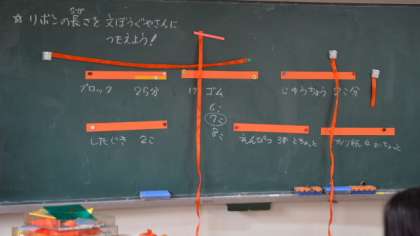 ☆ リボンの長さを えぼうぐやさんに
なが
つたえよう!
ブロック 25分
けしゴム
6こ
7こ
8こ
じゆうちょう
したじき 2こ
えんぴつ 3本とちょっと